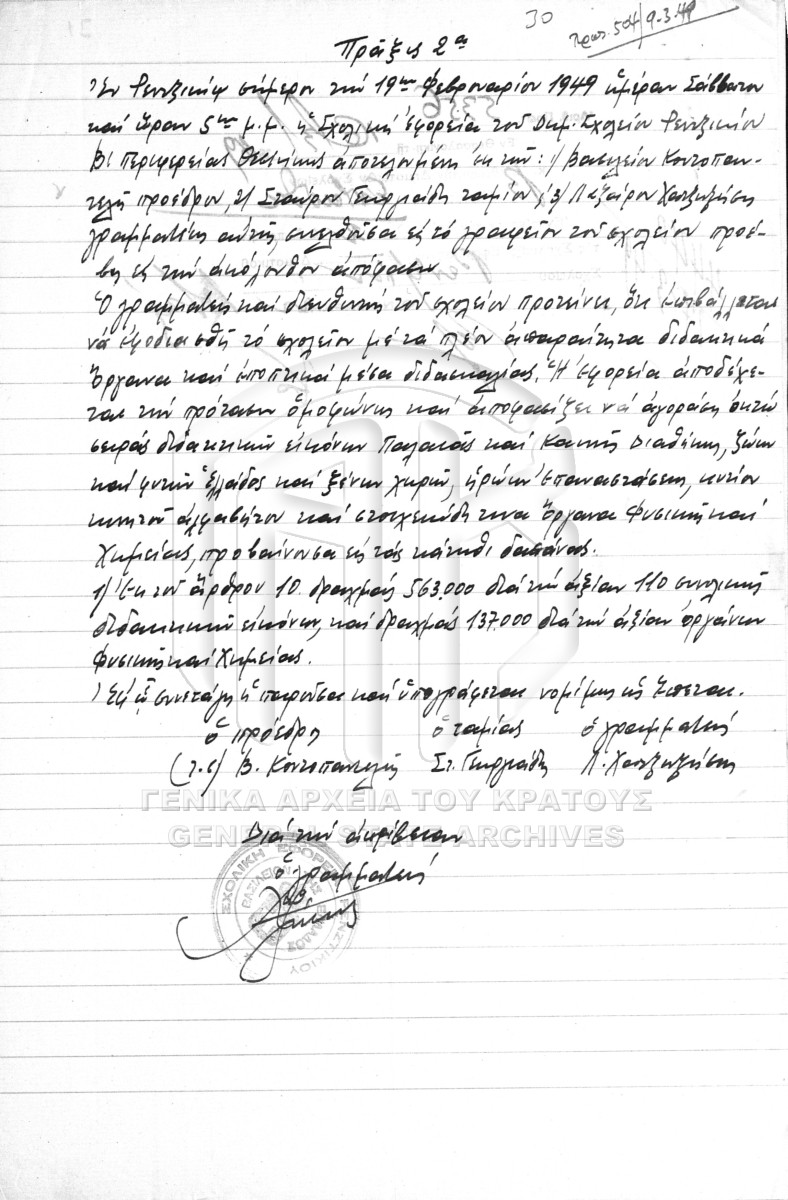 30
Πρωτ. 504/9-3-49
Πρᾶξις 2α
Ἐν Ρενζικίῳ σήμερον τήν 19ην Φεβρουαρίου 1949 ἡμέραν Σάββατον
καί ὥραν 5ην μ.μ. ἡ Σχολική Ἐφορεία τοῦ Δημ. Σχολείου Ρενζικίου
Β! Περιφερείας Θεσ/νίκης ἀποτελουμένη ἐκ τῶν: 1/ Βασιλείου Κοντοπαν-
τελῆ προέδρου, 2/ Σταύρου Γεωργιάδη ταμίου, 3/ Λαζάρου Χατζηζήση
γραμματέως αὐτῆς συνελθοῦσα εἰς τό γραφεῖον τοῦ σχολείου προέ-
βη εἰς τήν ἀκόλουθον ἀπόφασιν.
Ὁ γραμματεύς καί διευθυντής τοῦ σχολείου προτείνει, ὅτι ἐπιβάλλεται
νά ἐφοδιασθῇ τό σχολεῖον μέ τά πλέον ἀπαραίτητα διδακτικά
ὄργανα καί ἐποπτικά μέσα διδασκαλίας. Ἡ Ἐφορεία ἀποδέχε-
ται τήν πρότασιν ὁμοφώνως καί ἀποφασίζει νά ἀγοράσῃ ὀκτώ
σειράς διδακτικῶν εἰκόνων Παλαιᾶς καί Καινῆς Διαθήκης, ζώων
καί φυτῶν Ἑλλάδος καί ξένων χωρῶν, ἡρώων Ἐπαναστάσεως, κυτίον
κινητοῦ ἀλφαβήτου καί στοιχειώδη τινα ὄργανα Φυσικῆς καί
Χημείας, προβαίνουσα εἰς τάς κάτωθι δαπάνας.
1/ Ἐκ τοῦ ἄρθρου 10 δραχμάς 563.000 διά τήν ἀξίαν 110 συνολικῶς
διδακτικῶν εἰκόνων, καί δραχμάς 137.000 διά τήν ἀξίαν ὀργάνων
Φυσικῆς καί Χημείας.
Ἐφ' ᾧ συνετάγη ἡ παροῦσα καί ὑπογράφεται νομίμως ὡς ἕπεται.
ὁ πρόεδρος ὁ ταμίας ὁ γραμματεύς
(τ.σ/ Β. Κοντοπαντελῆς Στ. Γεωργιάδης Λ. Χατζηζήσης
ΓΕΝΙΚΑ ΑΡΧΕΙΑ ΤΟΥ ΚΡΑΤΟΥΣ
GENERAL STATE ARCHIVES
Διά τήν ἀκρίβειαν
ὁ γραμματεύς
ΣΧΟΛΙΚΗ ΕΦΟΡΕΙΑ
ΒΑΣΙΛΕΙΟΝ ΤΗΣ ΕΛΛΑΔΟΣ